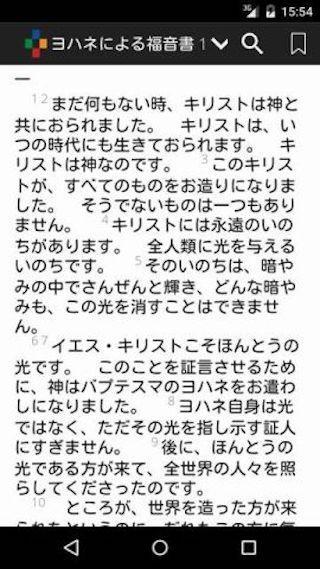 3G 15:54
ヨハネによる福音書 1
一
1 2 まだ何もない時、キリストは神と
共におられました。 キリストは、い
つの時代にも生きておられます。 キ
リストは神なのです。 3 このキリス
トが、すべてのものをお造りになりま
した。 そうでないものは一つもあり
ません。 4 キリストには永遠のいの
ちがあります。 全人類に光を与える
いのちです。 5 そのいのちは、暗や
みの中でさんぜんと輝き、どんな暗や
みも、この光を消すことはできませ
ん。
6 7 イエス・キリストこそほんとうの
光です。 このことを証言させるため
に、神はバプテスマのヨハネをお遣わ
しになりました。 8 ヨハネ自身は光
ではなく、ただその光を指し示す証人
にすぎません。 9 後に、ほんとうの
光である方が来て、全世界の人々を照
らしてくださったのです。
10 ところが、世界を造った方が来
られたというのに、だれもこの方に気